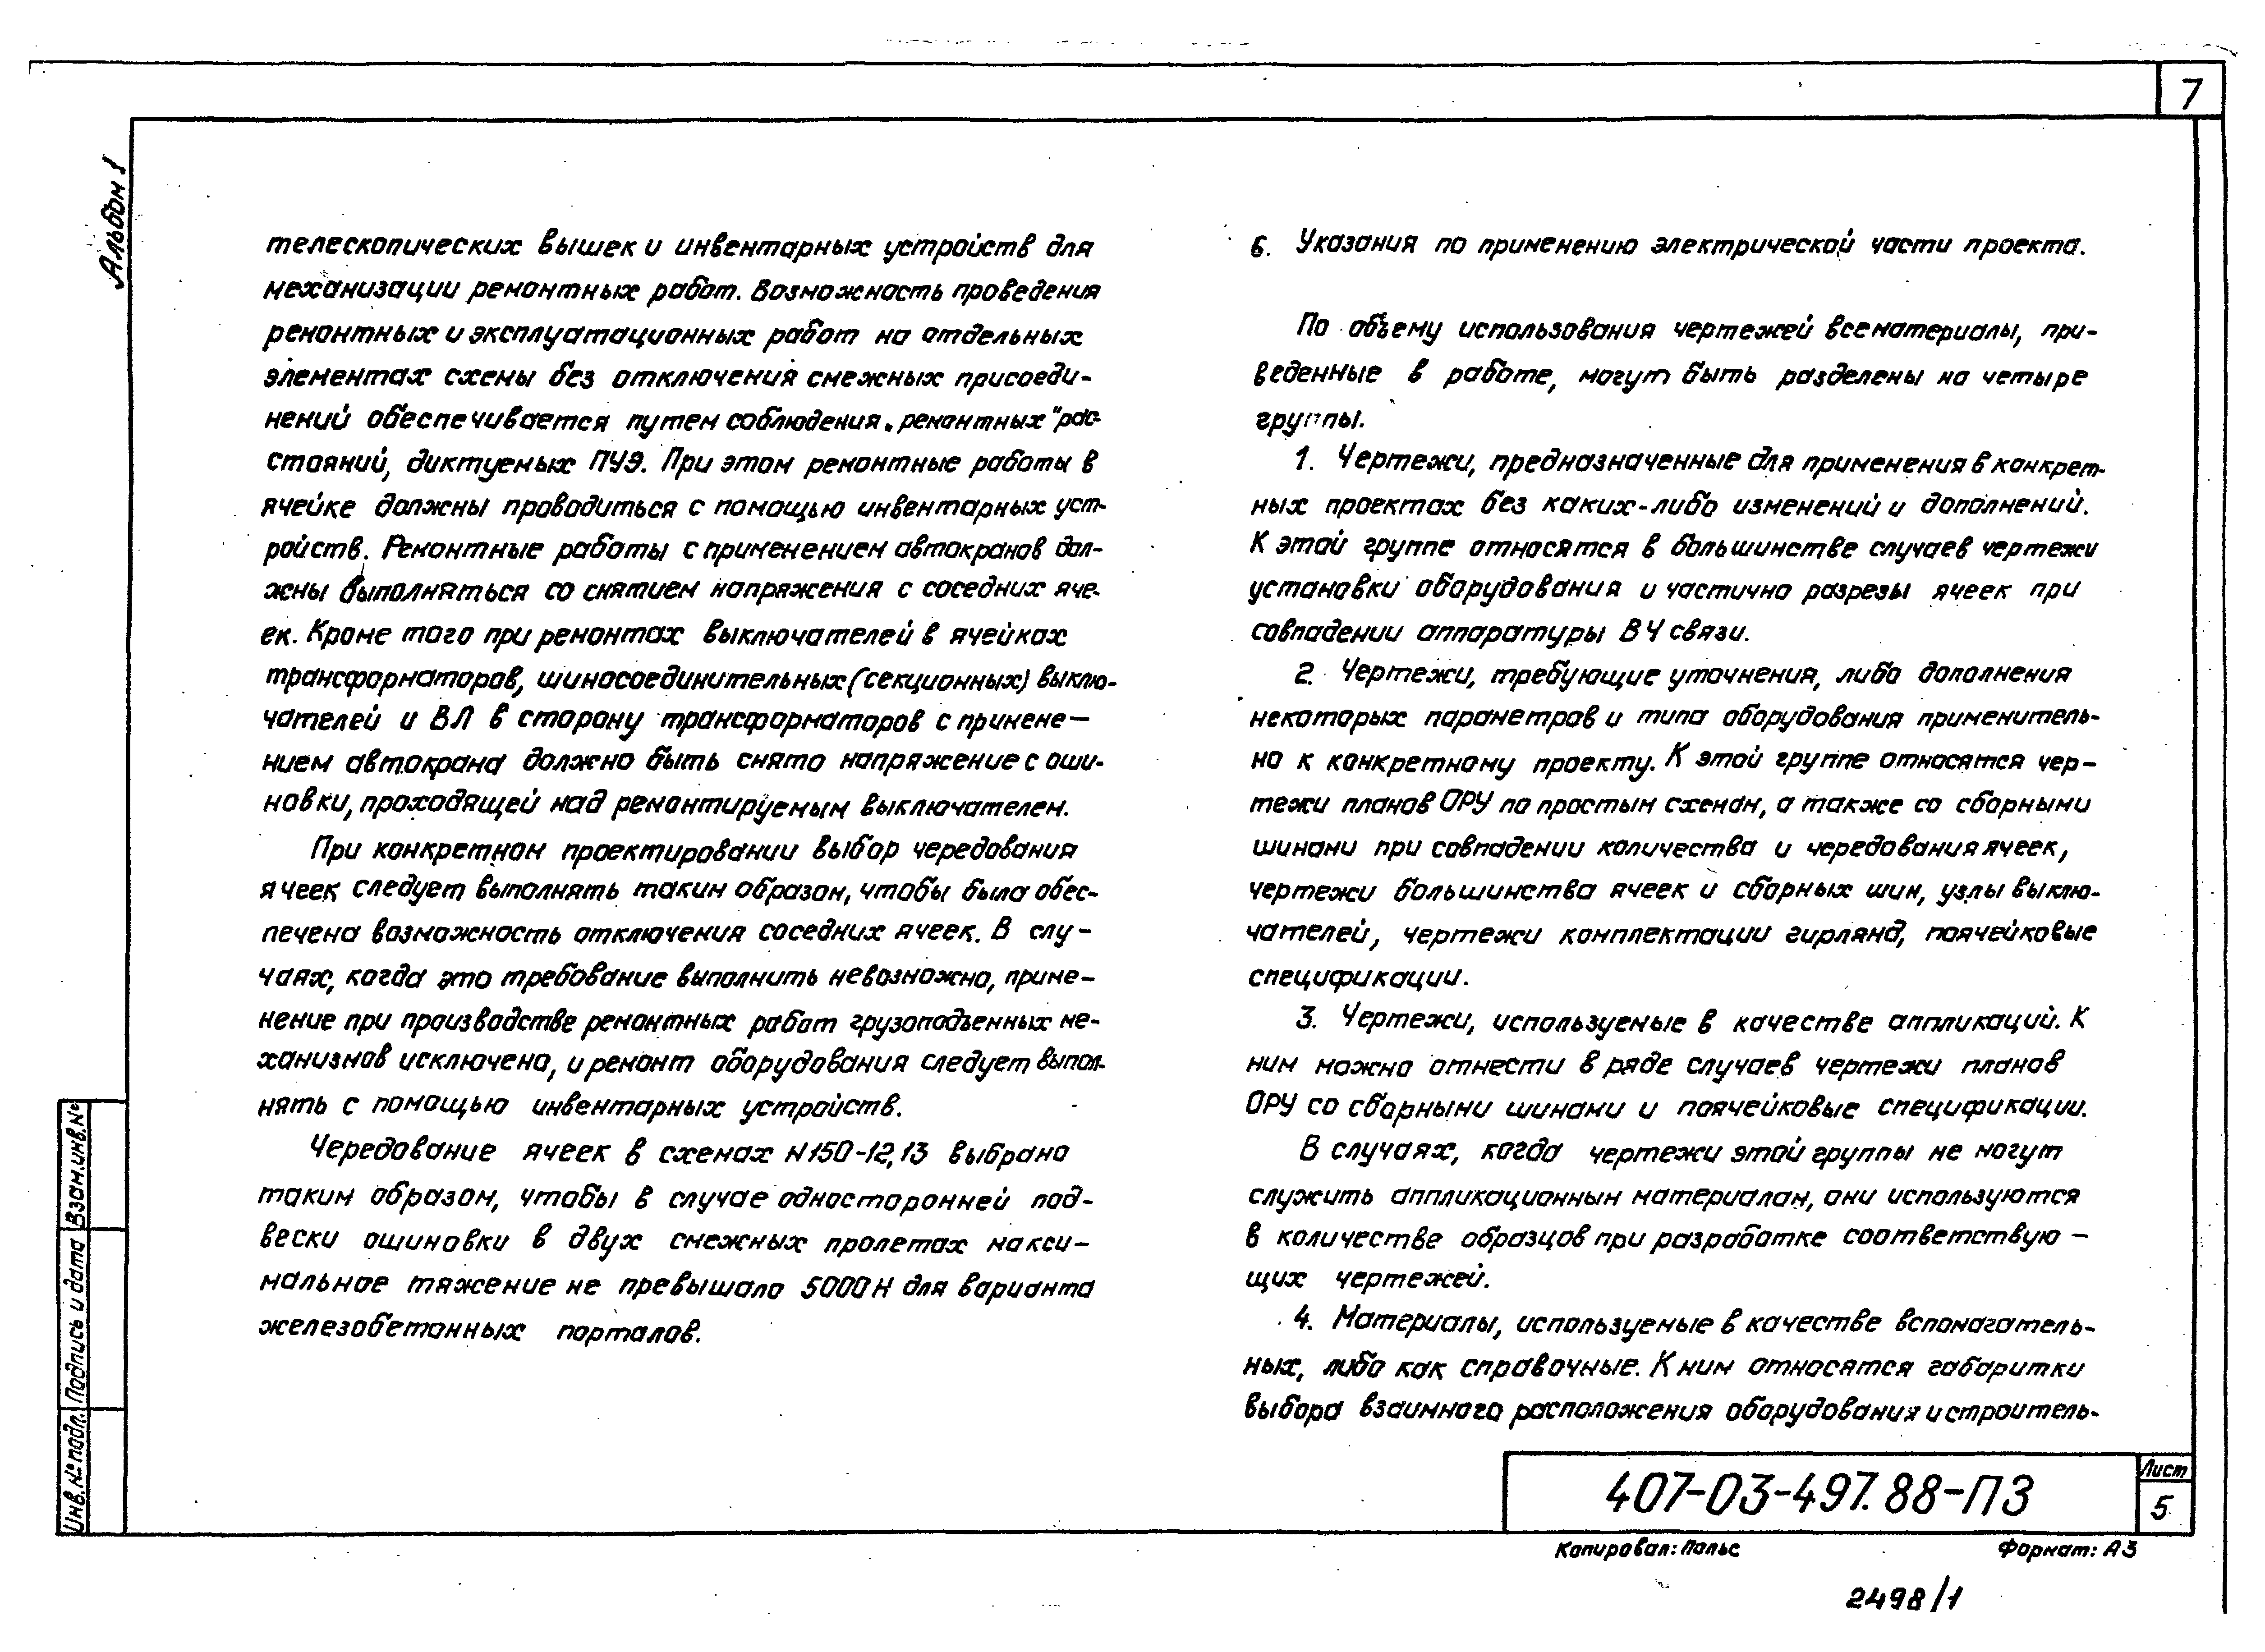 7
Альбом 1
телескопических вышек и инвентарных устройств для
механизации ремонтных работ. Возможность проведения
ремонтных и эксплуатационных работ на отдельных
элементах схемы без отключения смежных присоеди-
нений обеспечивается путем соблюдения „ремонтных" рас-
стояний, диктуемых ПУЭ. При этом ремонтные работы в
ячейке должны проводиться с помощью инвентарных уст-
ройств. Ремонтные работы с применением автокранов дол-
жны выполняться со снятием напряжения с соседних яче-
ек. Кроме того при ремонтах выключателей в ячейках
трансформаторов, шиносоединительных (секционных) выклю-
чателей и ВЛ в сторону трансформаторов с примене-
нием автокрана должно быть снято напряжение с оши-
новки, проходящей над ремонтируемым выключателем.
При конкретном проектировании выбор чередования
ячеек следует выполнять таким образом, чтобы была обес-
печена возможность отключения соседних ячеек. В слу-
чаях, когда это требование выполнить невозможно, приме-
нение при производстве ремонтных работ грузоподъемных ме-
ханизмов исключено, и ремонт оборудования следует выпол-
нять с помощью инвентарных устройств.
Чередование ячеек в схемах N150-12,13 выбрано
таким образом, чтобы в случае односторонней под-
вески ошиновки в двух смежных пролетах макси-
мальное тяжение не превышало 5000Н для варианта
железобетонных порталов.
6. Указания по применению электрической части проекта.
По объему использования чертежей все материалы, при-
веденные в работе, могут быть разделены на четыре
группы.
1. Чертежи, предназначенные для применения в конкрет-
ных проектах без каких-либо изменений и дополнений.
К этой группе относятся в большинстве случаев чертежи
установки оборудования и частично разрезы ячеек при
совпадении аппаратуры ВЧ связи.
2. Чертежи, требующие уточнения, либо дополнения
некоторых параметров и типа оборудования применитель-
но к конкретному проекту. К этой группе относятся чер-
тежи планов ОРУ по простым схемам, а также со сборными
шинами при совпадении количества и чередования ячеек,
чертежи большинства ячеек и сборных шин, узлы выклю-
чателей, чертежи комплектации гирлянд, поячейковые
спецификации.
3. Чертежи, используемые в качестве аппликаций. К
ним можно отнести в ряде случаев чертежи планов
ОРУ со сборными шинами и поячейковые спецификации.
В случаях, когда чертежи этой группы не могут
служить аппликационным материалам, они используются
в количестве образцов при разработке соответствую-
щих чертежей.
4. Материалы, используемые в качестве вспомогатель-
ных, либо как справочные. К ним относятся габаритки
выбора взаимного расположения оборудования и строитель-
Инв. № подл. Подпись и дата Взам. инв. №
407-03-497.88-ПЗ
Лист
5
Копировал: Польс
Формат: А3
2498/1